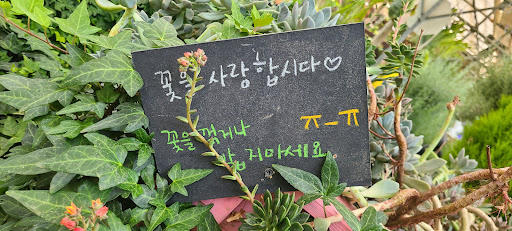 꽃을 사랑합시다♡
꽃을 꺾거나
만지마세요. ㅠ_ㅠ